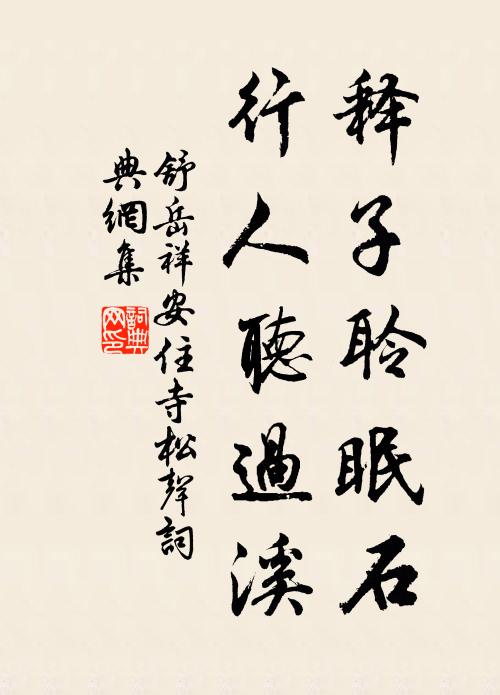 释子聆眠石
行人聽過溪
舒岳祥安住寺松聲詞
典網集
詞典网印